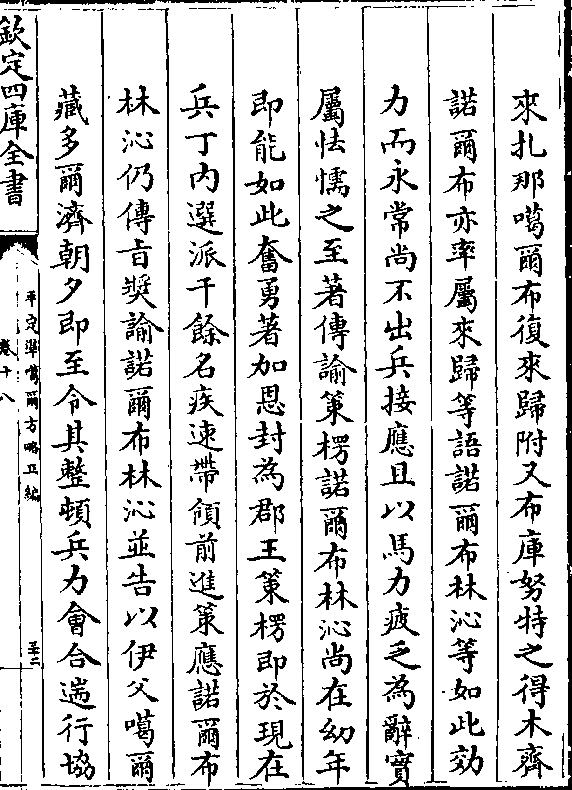 來扎那噶爾布復來歸附又布庫努特之得木齊
諾爾布亦率屬來歸等語諾爾布林沁等如此効
力而永常尚不出兵接應且以馬力疲乏為辭實
屬怯懦之至著傳諭策楞諾爾布林沁尚在幼年
即能如此奮勇著加恩封為郡王策楞即於現在
兵丁內選派千餘名疾速帶領前進策應諾爾布
林沁仍傳㫖奬諭諾爾布林沁並告以伊父噶爾
藏多爾濟朝夕即至令其整頓兵力會合遄行協
欽定四庫全書
平定凖噶爾方略正編
卷十八